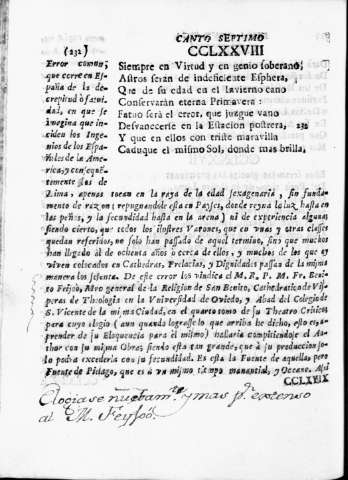 CANTO SEPTIMO
(232)
CCLXXVIII
Error comun,
que corre en Es-
paña de la de-
crepitud ò fatui-
dad, en que se
imagina que in-
ciden los Inge-
nios de los Espa-
ñoles de la Ame-
rica; y consequē-
temente los de
Siempre en Virtud y en genio soberano,
Astros seràn de indeficiente Esphera,
Que de su edad en el Invierno cano
Conservaràn eterna Primavera:
Fatuo serà el error, que juzgue vano
Desvanecerse en la Estacion postrera, 232
Y que en ellos con triste maravilla
Caduque el mismo Sol, donde mas brilla,
Lima, apenas tocan en la raya de la edad sexagenaria, sin funda-
mento de razon (repugnandole esta en Payses, donde reyna la luz hasta en
las peñas, y la fecundidad hasta en la arena) ni de experiencia alguna;
siendo cierto, que todos los ilustres Varones, que en unas y otras clases
quedan referidos, no solo han passado de aquel termino, sino que muchos
han llegado àl de ochenta años ò cerca de ellos; y muchos de los que oy
viven colocados en Cathedras, Prelacias, y Dignidades passan de la misma
manera los sesenta. De este error los vindica el M. R. P. M. Fr. Beni-
to Feijoò, Mro general de la Religion de San Benito, Cathedratico de Vis-
peras de Theologia en la Universidad de Oviedo, y Abad del Colegio de
S. Vicente de la misma Ciudad, en el quarto tomo de su Theatro Critico;
para cuyo elogio (aun quando lograsse lo que arriba he dicho, esto es, a-
prender de su Eloquencia para èl mismo) hallaria compitiendole al Au-
thor con su misma Obra; siendo esta tan grande, que à su produccion so-
lo podia excederla con su fecundidad. Es esta la Fuente de aquellas pero
Fuente de Piélago, que es à un mismo tiempo manantial, y Oceano. Assi
CCLXXIX
Elogiase nuebam.te y mas p.r extenso
al M. Feyjoó.